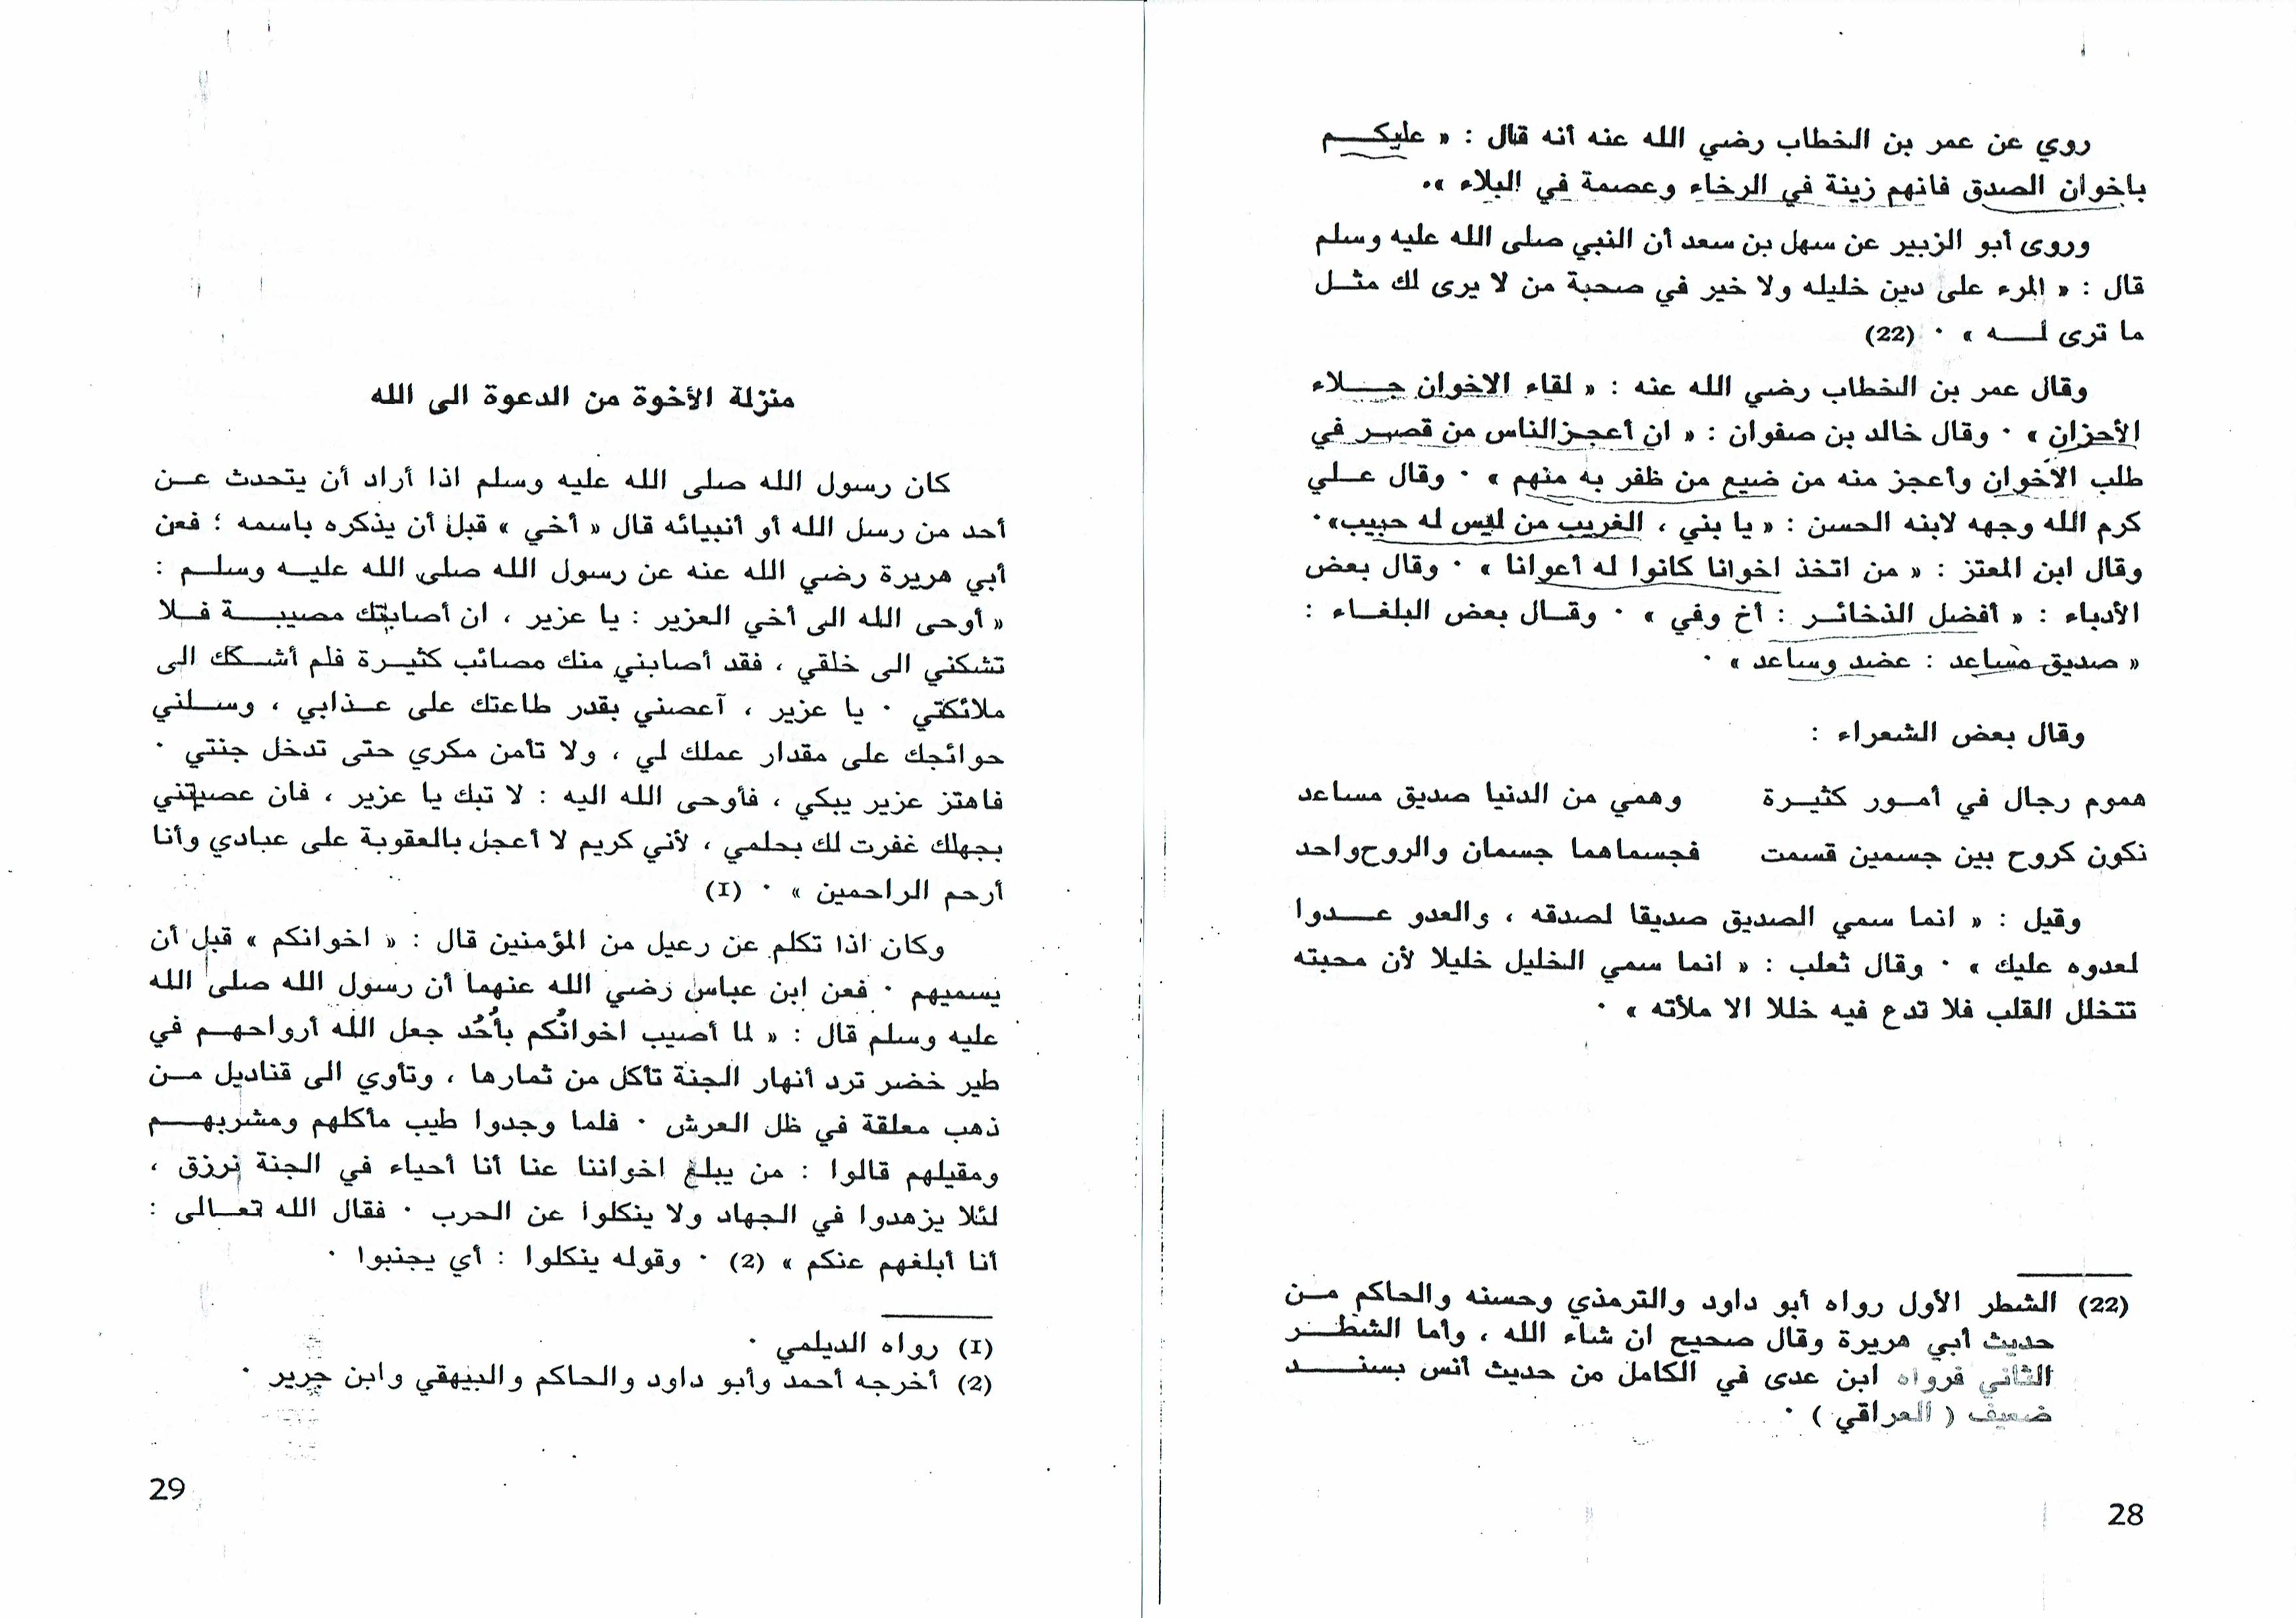 روي عن عمر بن الخطاب رضي الله عنه أنه قال : « عليكـــم
باخوان الصدق فانهم زينة في الرخاء وعصمة في البلاء »٠
وروى أبو الزبير عن سهل بن سعد أن النبي صلى الله عليه وسلم
قال : « المرء على دين خليله ولا خير في صحبة من لا يرى لك مثــل
ما ترى لـــه » ٠ (22)
وقال عمر بن الخطاب رضي الله عنه : « لقاء الاخوان جــلاء
الأحزان » ٠ وقال خالد بن صفوان : « ان أعجـزالناس من قصـر في
طلب الأخوان وأعجز منه من ضيع من ظفر به منهم » ٠ وقال علـي
كرم الله وجهه لابنه الحسن : « يا بني ، الغريب من ليس له حبيب»٠
وقال ابن المعتز : « من اتخذ اخوانا كانوا له أعوانا » ٠ وقال بعض
الأدباء : « أفضل الذخائـر : أخ وفي » ٠ وقـال بعض البلغـاء :
« صديق مساعد : عضد وساعد » ٠
وقال بعض الشعراء :
هموم رجال في أمـور كثيـرة وهمي من الدنيا صديق مساعد
نكون كروح بين جسمين قسمت فجسماهما جسمان والروح واحد
وقيل : « انما سمي الصديق صديقا لصدقه ، والعدو عـــدوا
لعدوه عليك » ٠ وقال ثعلب : « انما سمي الخليل خليلا لأن محبته
تتخلل القلب فلا تدع فيه خللا الا ملأته » ٠
(22) الشطر الأول رواه أبو داود والترمذي وحسنه والحاكم مـن
حديث أبي هريرة وقال صحيح ان شاء الله ، وأما الشطـــر
الثاني فرواه ابن عدى في الكامل من حديث أنس بسنـــد
ضعيف ( العراقي ) ٠
28
منزلة الأخوة من الدعوة الى الله
كان رسول الله صلى الله عليه وسلم اذا أراد أن يتحدث عـن
أحد من رسل الله أو أنبيائه قال « أخي » قبل أن يذكره باسمه ؛ فعن
أبي هريرة رضي الله عنه عن رسول الله صلى الله عليـه وسلـم :
« أوحى الله الى أخي العزير : يا عزير ، ان أصابتك مصيبـــة فـلا
تشكني الى خلقي ، فقد أصابني منك مصائب كثيـرة فلم أشـكك الى
ملائكتي ٠ يا عزير ، آعصني بقدر طاعتك على عـذابي ، وسـلني
حوائجك على مقدار عملك لي ، ولا تأمن مكري حتى تدخل جنتي ٠
فاهتز عزير يبكي ، فأوحى الله اليه : لا تبك يا عزير ، فان عصيتني
بجهلك غفرت لك بحلمي ، لأني كريم لا أعجل بالعقوبة على عبادي وأنا
أرحم الراحمين » ٠ (I)
وكان اذا تكلم عن رعيل من المؤمنين قال : « اخوانكم » قبل أن
يسميهم ٠ فعن ابن عباس رضي الله عنهما أن رسول الله صلى الله
عليه وسلم قال : « لما أصيب اخوانُكم بأُحُد جعل الله أرواحهـم في
طير خضر ترد أنهار الجنة تأكل من ثمارها ، وتأوي الى قناديل مـن
ذهب معلقة في ظل العرش ٠ فلما وجدوا طيب مأكلهم ومشربهـــم
ومقيلهم قالوا : من يبلغ اخواننا عنا أنا أحياء في الجنة نرزق ،
لئلا يزهدوا في الجهاد ولا ينكلوا عن الحرب ٠ فقال الله تعـالى :
أنا أبلغهم عنكم » (2) ٠ وقوله ينكلوا : أي يجنبوا ٠
(I) رواه الديلمي ٠
(2) أخرجه أحمد وأبو داود والحاكم والبيهقي وابن جرير ٠
29